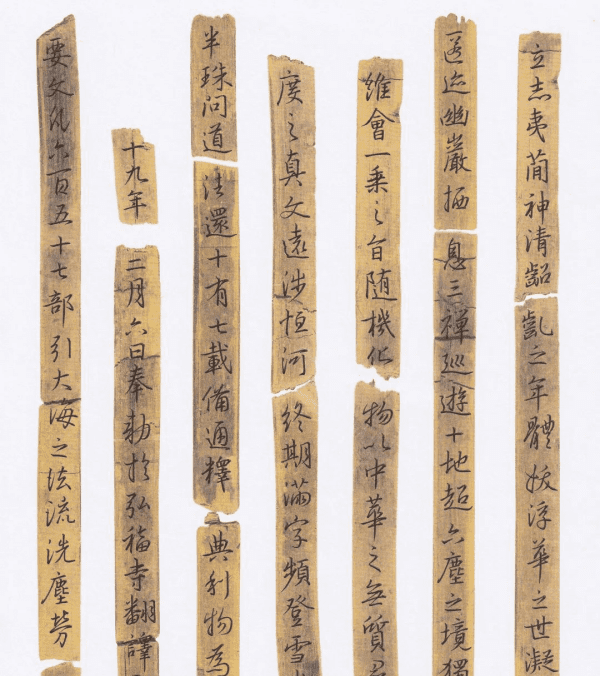 立志夷簡神清齠齔之年體拔浮華之世凝
匿迹幽巖栖息三禪巡遊十地超六塵之境獨
維會一乘之旨随機化物以中華之無質
度之真文遠涉恒河終期滿字頻登雪
半珠問道往還十有七載備通釋典利物為
十九年二月六日奉勅於弘福寺翻譯
要文凡六百五十七部引大海之法流洗塵勞